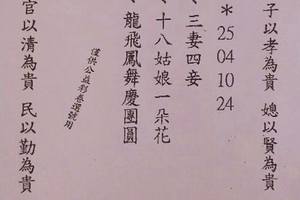 子以孝為貴 媳以賢為貴
＊25 04 10 24
、三妻四妾
、十八姑娘一朵花
、龍飛鳳舞慶團圓
僅供公益彩卷選號用
官以清為貴 民以勤為貴